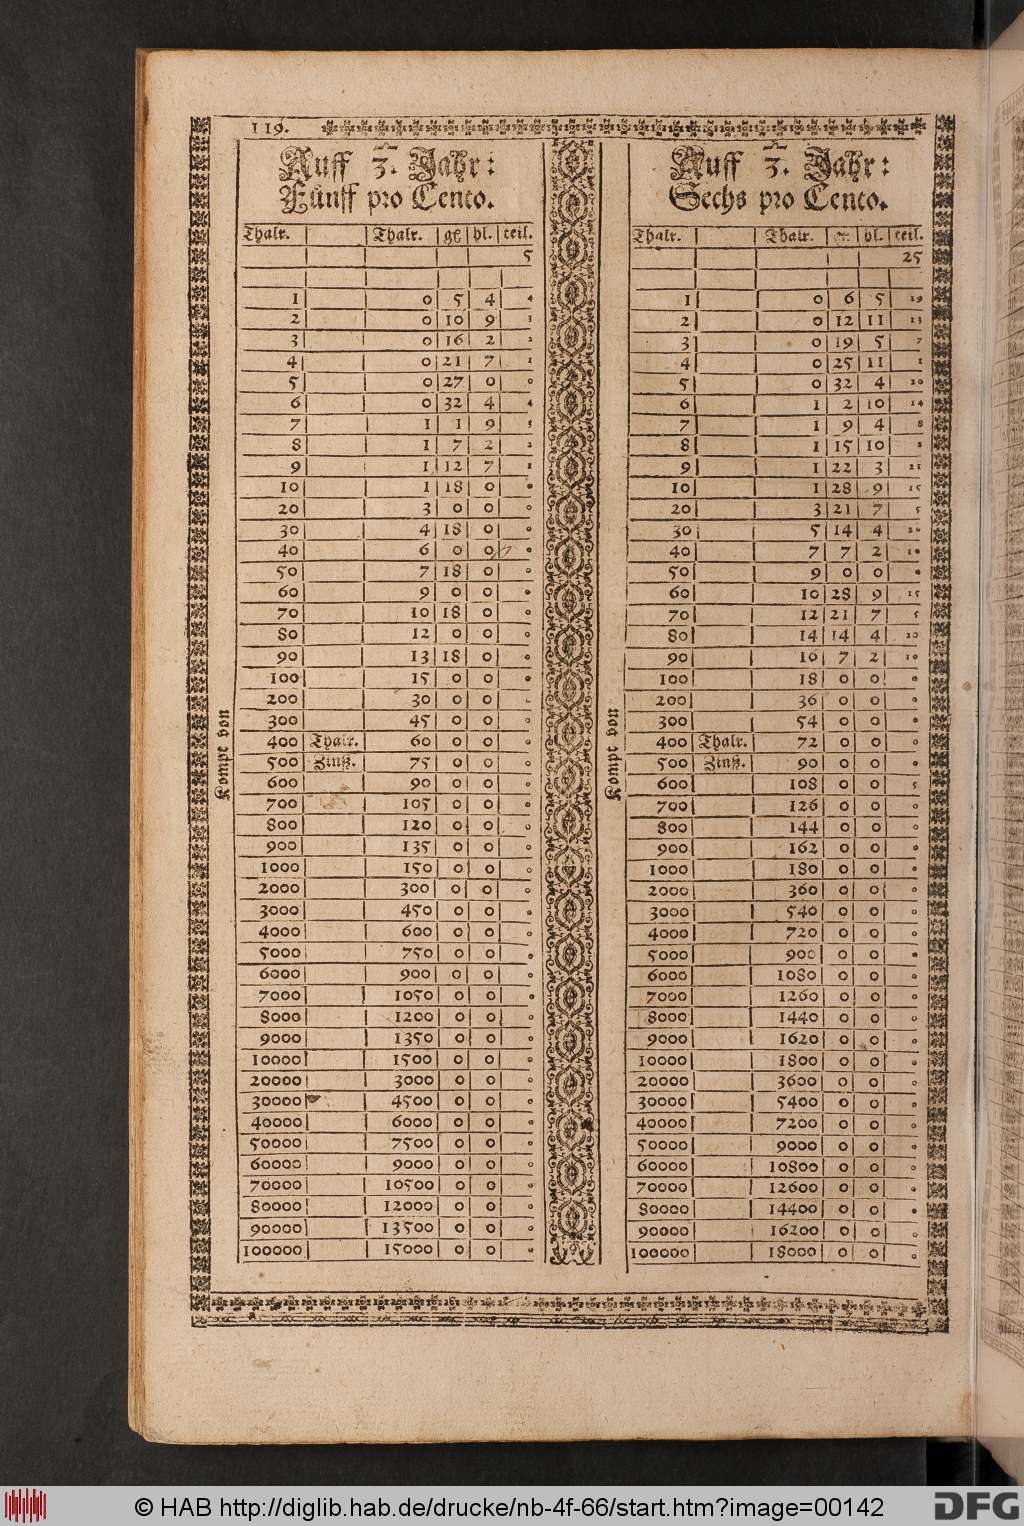 119.
Auff 3. Jahr:
Fünff pro Cento.
Thalr. Thalr. gl pl. teil.
5
1 0 5 4 4
2 0 10 9 3
3 0 16 2 2
4 0 21 7 1
5 0 27 0 0
6 0 32 4 4
7 1 1 9 3
8 1 7 2 2
9 1 12 7 1
10 1 18 0 0
20 3 0 0 0
30 4 18 0 0
40 6 0 0 0
50 7 18 0 0
60 9 0 0 0
70 10 18 0 0
80 12 0 0 0
90 13 18 0 0
100 15 0 0 0
200 30 0 0
300 45 0 0 0
400 Thalr. 60 0 0 0
500 Zinß. 75 0 0 0
600 90 0 0 0
700 105 0 0 0
800 120 0 0 0
900 135 0 0 0
1000 150 0 0 0
2000 300 0 0 0
3000 450 0 0 0
4000 600 0 0 0
5000 750 0 0 0
6000 900 0 0 0
7000 1050 0 0 0
8000 1200 0 0 0
9000 1350 0 0 0
10000 1500 0 0 0
20000 3000 0 0 0
30000 4500 0 0 0
40000 6000 0 0 0
50000 7500 0 0 0
60000 9000 0 0 0
70000 10500 0 0 0
80000 12000 0 0 0
90000 13500 0 0 0
100000 15000 0 0 0
Kompt von
Auff 3. Jahr:
Sechs pro Cento.
Thalr. Thalr. pl. teil.
25
1 0 6 5 19
2 0 12 11 13
3 0 19 5 7
4 0 25 11 1
5 0 32 4 20
6 1 2 10 14
7 1 9 4 8
8 1 15 10 2
9 1 22 3 21
10 1 28 9 15
20 3 21 7 5
30 5 14 4 20
40 7 7 2 10
50 9 0 0 0
60 10 28 9 15
70 12 21 7 5
80 14 14 4 20
90 16 7 2 10
100 18 0 0 0
200 36 0 0 0
300 54 0 0 0
400 Thalr. 72 0 0 0
500 Zinß. 90 0 0 0
600 108 0 0
700 126 0 0 0
800 144 0 0 0
900 162 0 0 0
1000 180 0 0 0
2000 360 0 0 0
3000 540 0 0 0
4000 720 0 0 0
5000 900 0 0 0
6000 1080 0 0 0
7000 1260 0 0 0
8000 1440 0 0 0
9000 1620 0 0 0
10000 1800 0 0 0
20000 3600 0 0 0
30000 5400 0 0 0
40000 7200 0 0 0
50000 9000 0 0 0
60000 10800 0 0 0
70000 12600 0 0 0
80000 14400 0 0 0
90000 16200 0 0 0
100000 18000 0 0 0
Kompt von
© HAB http://diglib.hab.de/drucke/nb-4f-66/start.htm?image=00142
DFG